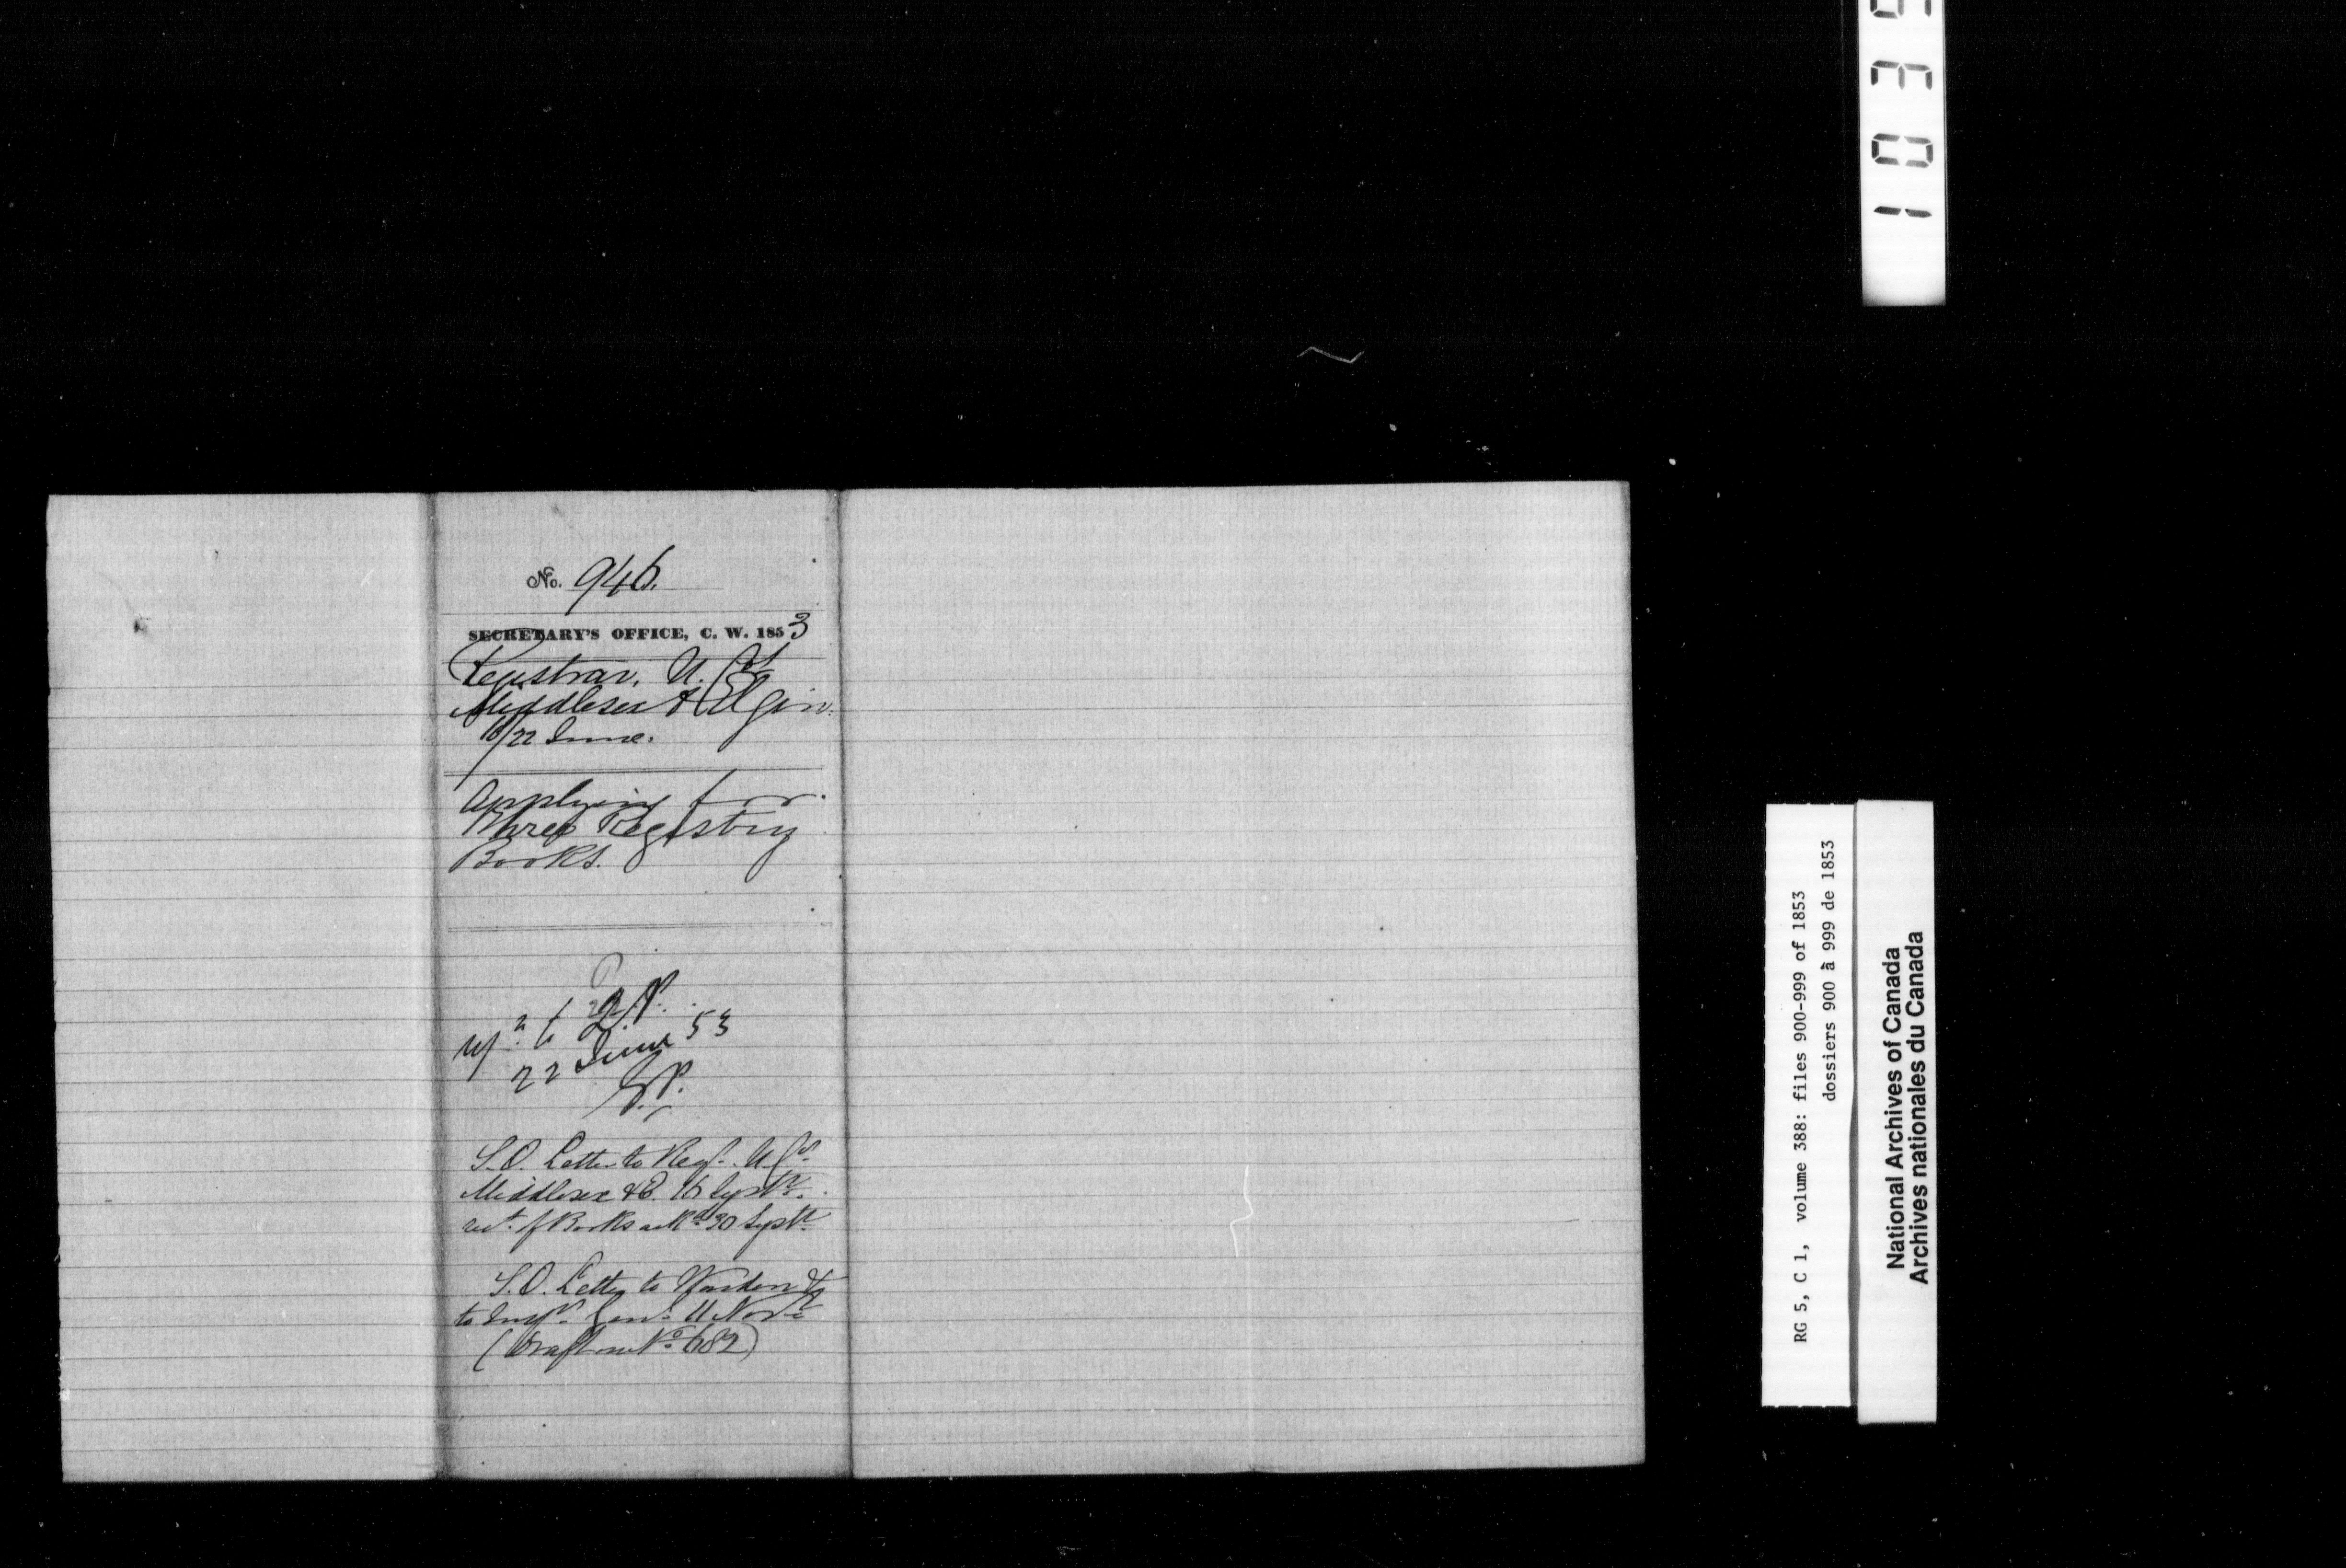 No. 946.
SECRETARY'S OFFICE, C. W. 1853
Registrar, U. Cos
Middlesex & Elgin.
16/22 June.
Applying for
three Registry
Books.
22 June 53
S.O. Letter to Regr. U. Cos.
Middlesex & E. 16 Septr.
rect. of Books ackd. 30 Septr.
S.O. Letter to Warden &
to Inspr. Genl. 11 Novr.
(Draft on No. 682)
1035
RG 5, C 1, volume 388: files 900-999 of 1853
dossiers 900 à 999 de 1853
National Archives of Canada
Archives nationales du Canada